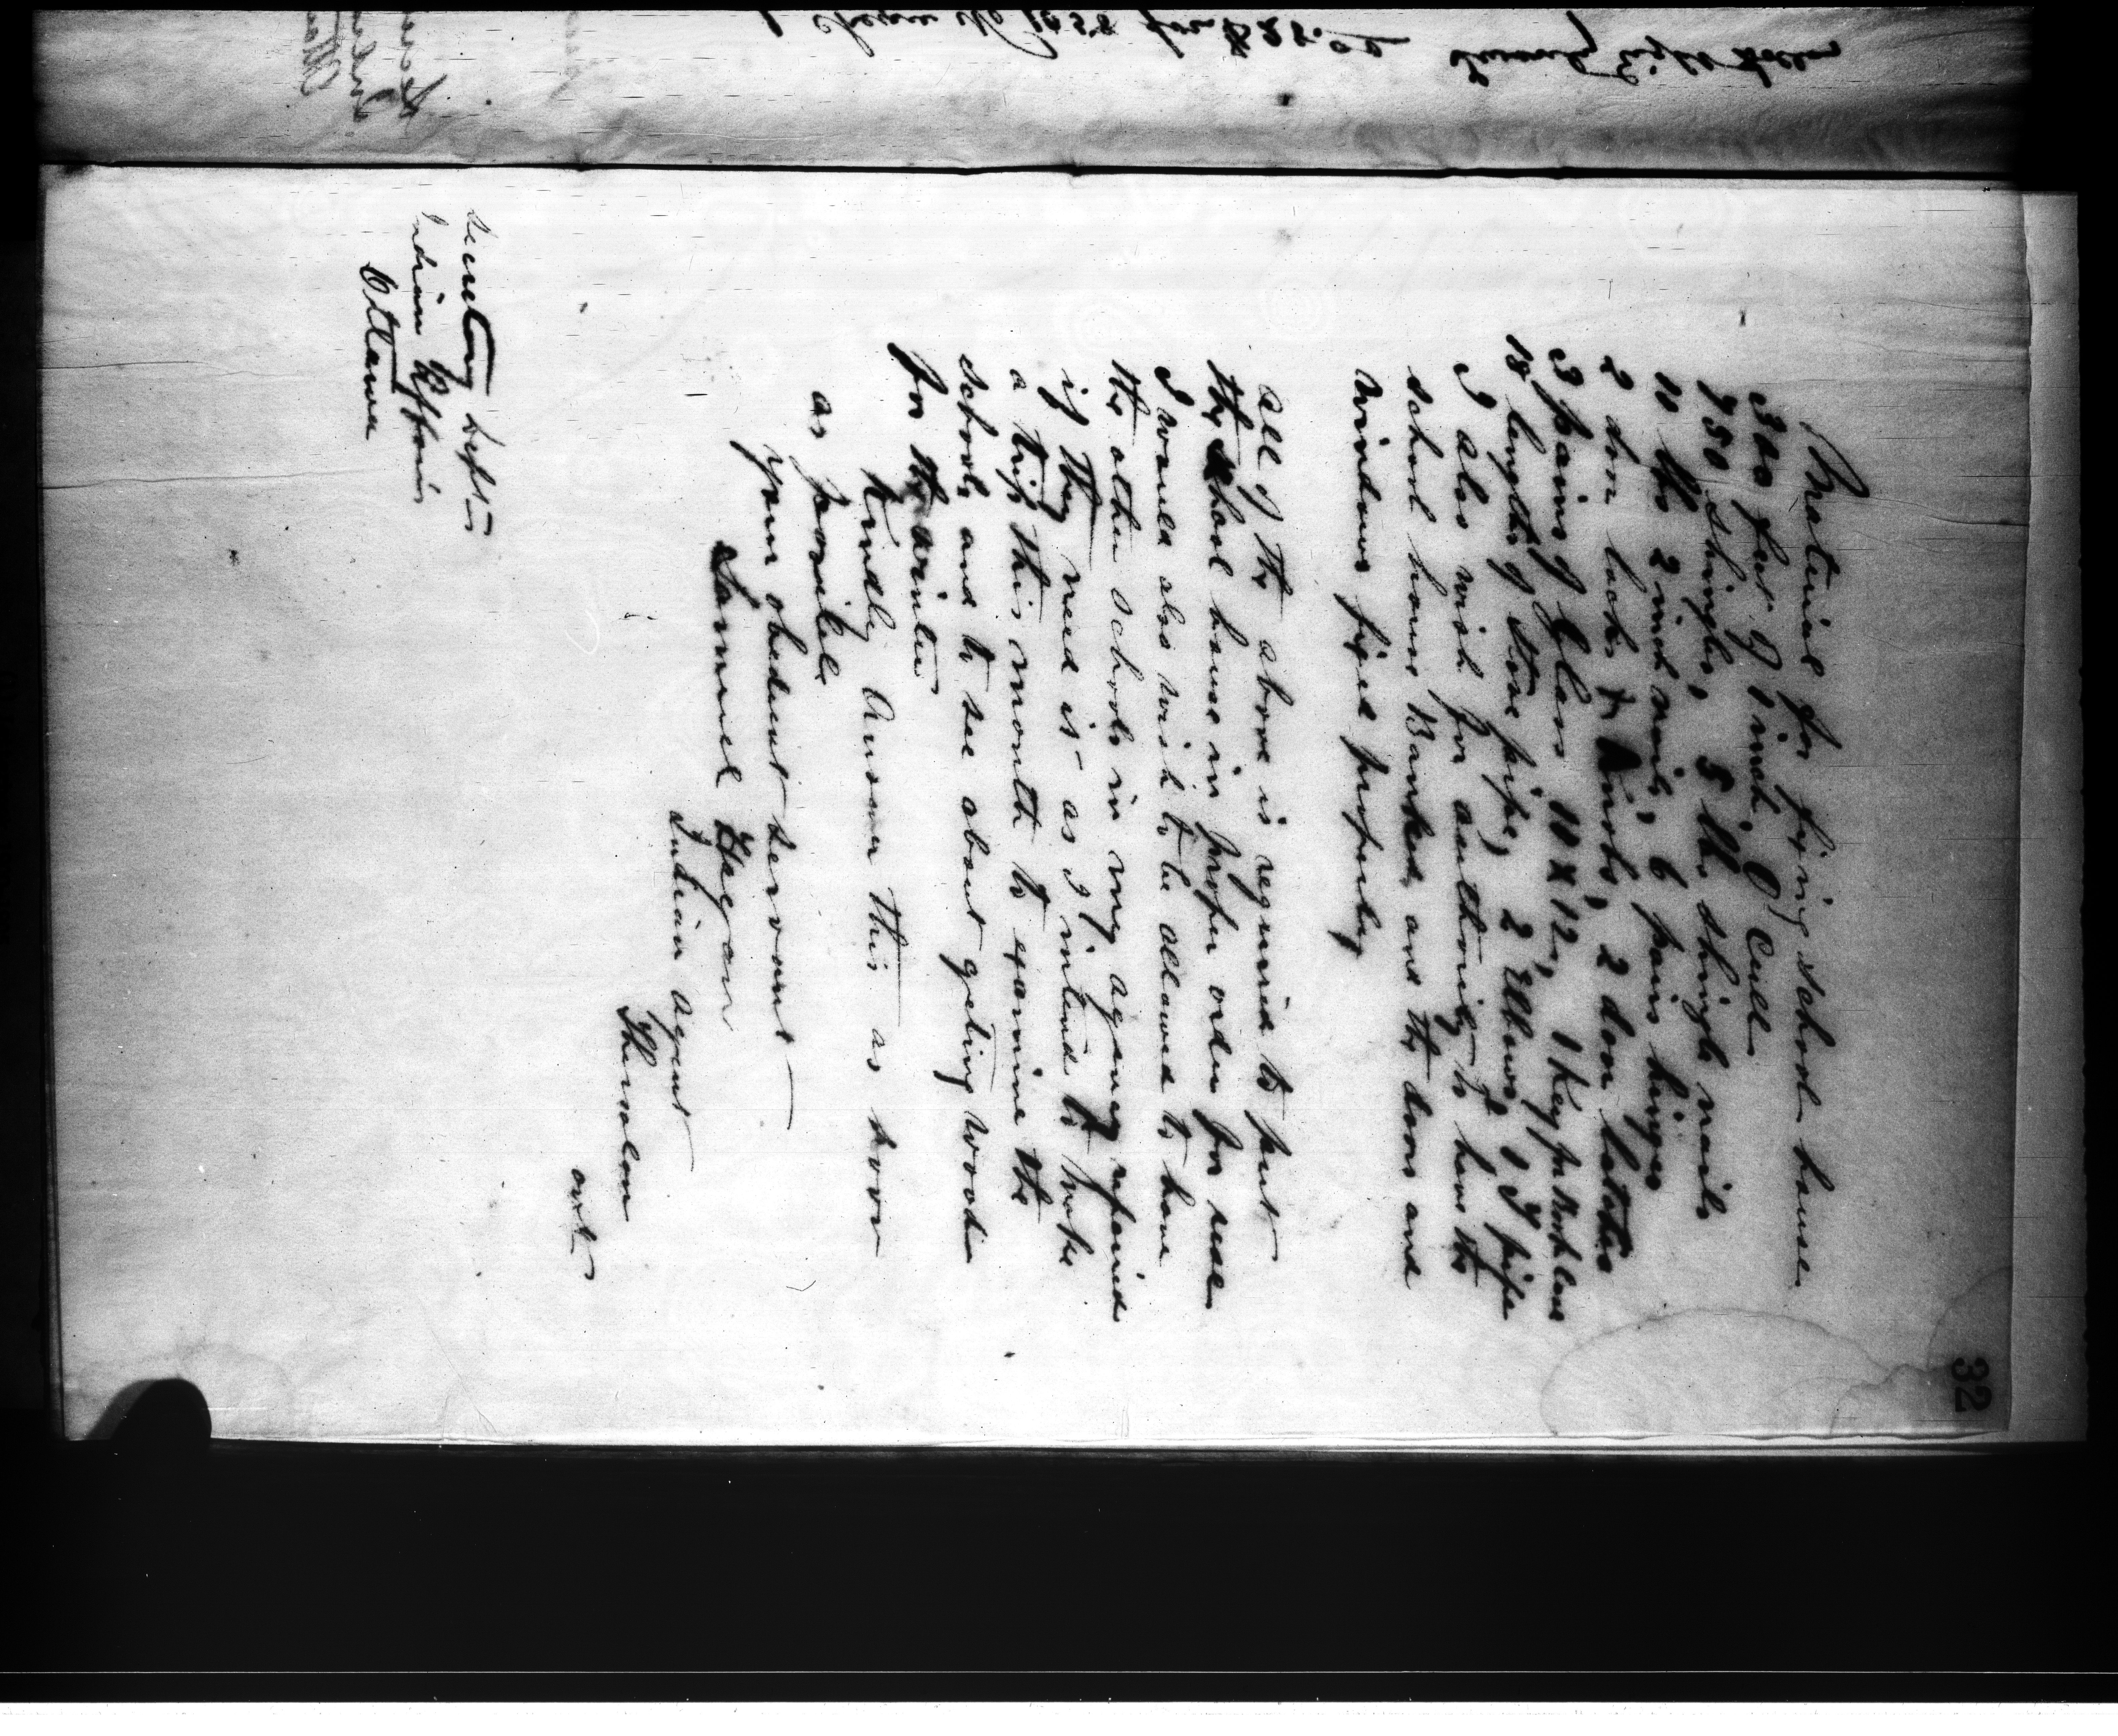 32
Material for fixing school house
300 feet of 1 inch, O Cull
750 shingles, 5 lbs shingle nails
10 lbs 2 inch nails, 6 pairs hinges
2 door locks & Knobs, 2 door latches
3 pains of Glass 10 x 12, 1 Key for
18 lengths of stove pipe, 2 Elbows & 1 T pipe
I also wish for authority to have the
school house Banked and the doors and
windows fixed properly
all of the above is required to put
the school house in proper order for use
I would also wish to be allowed to have
the other schools in my agency repaired
if they need it as I intend to make
a trip this month to examine the
schools and to see about getting wood
for the winter
Kindly Answer this as soon
as possible
your obedient servant
Samuel Hagan
Indian Agent
Thessalon
ont
Secretary Dept
Indian Affairs
Ottawa